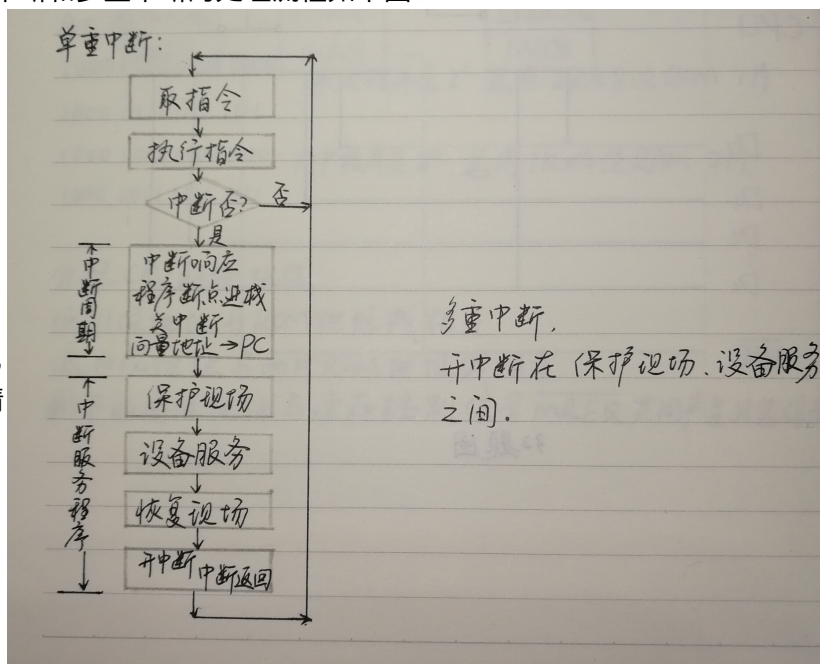 单重中断:
取指令
执行指令
中断否?
否
是
中断周期
中断响应
程序断点进栈
关中断
向量地址→PC
中断服务程序
保护现场
设备服务
恢复现场
开中断
中断返回
多重中断,
开中断在 保护现场、设备服务
之间.